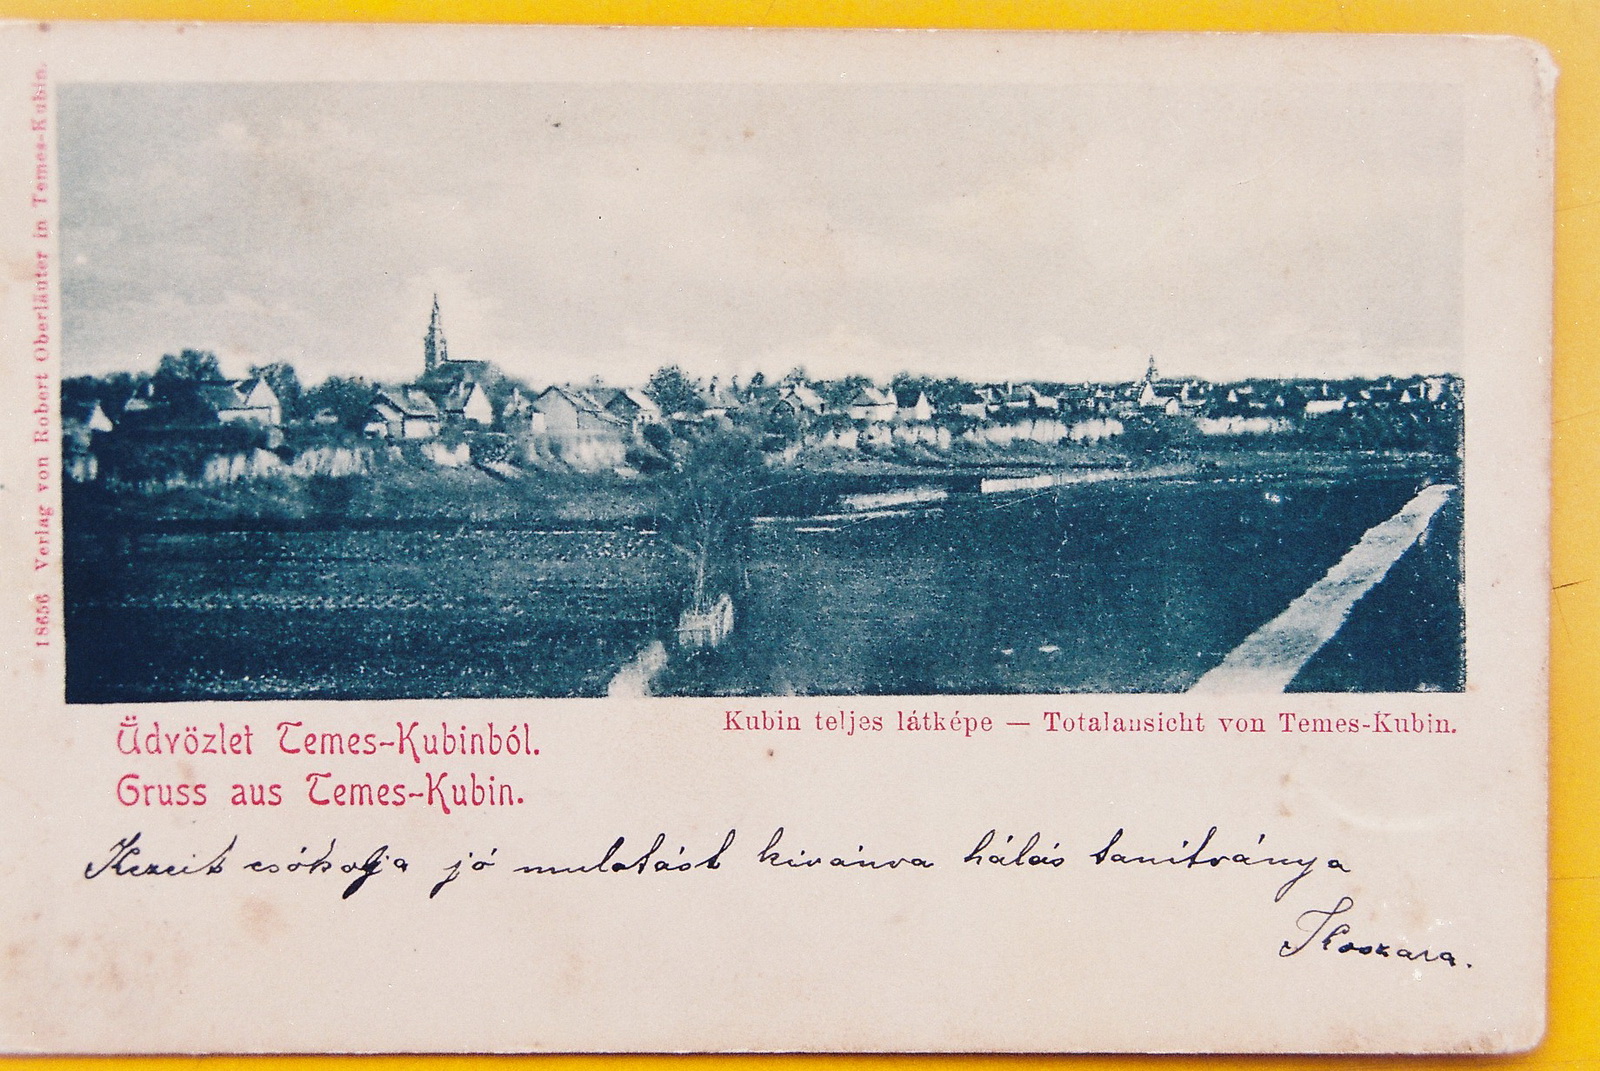 18656 Verlag von Robert Oberläuter in Temes-Kubin.
Kubin teljes látképe — Totalansicht von Temes-Kubin.
Üdvözlet Temes-Kubinból.
Gruss aus Temes-Kubin.
Kezeit csókolja jó mulatást kivánva hálás tanítványa